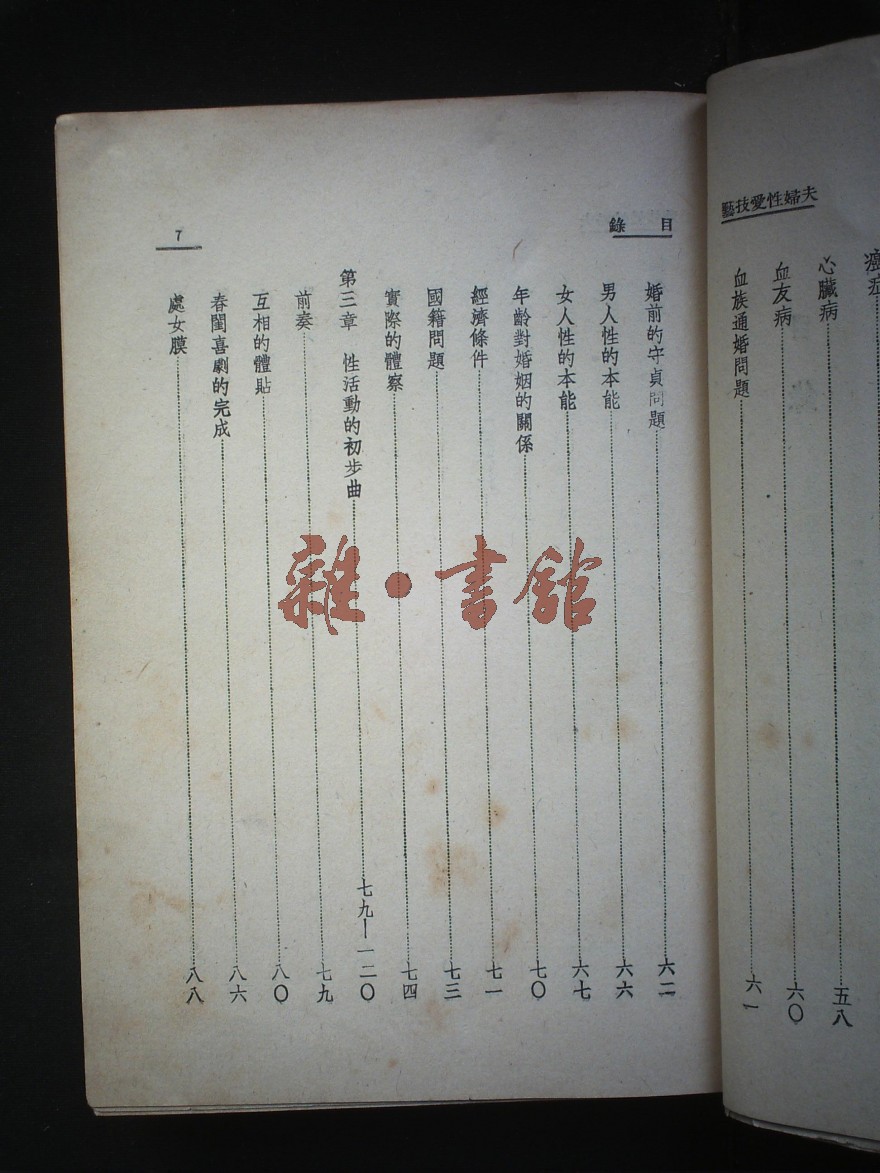 夫婦性愛技藝
癌症
心臟病……五八
血友病……六〇
血族通婚問題……六一
目錄
婚前的守貞問題……六二
男人性的本能……六六
女人性的本能……六七
年齡對婚姻的關係……七〇
經濟條件……七一
國籍問題……七三
實際的體察……七四
第三章 性活動的初步曲……七九—一二〇
前奏……七九
互相的體貼……八〇
春閨喜劇的完成……八六
處女膜……八八
7
雜·書館